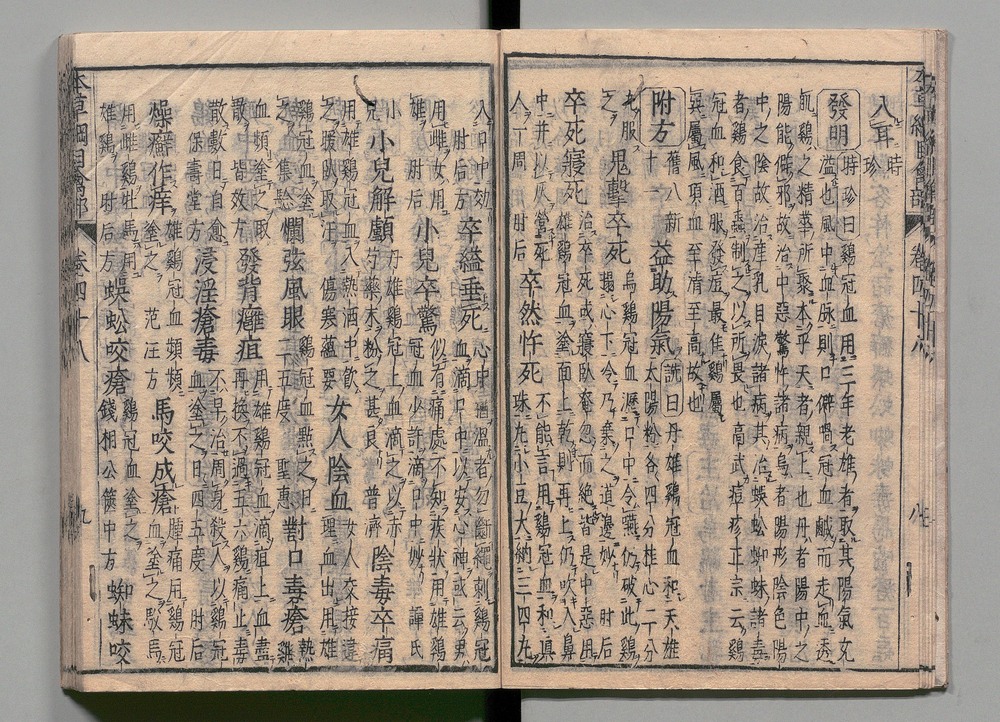 入耳時珍
發明時珍曰雞冠血用三年老雄者取其陽氣充
溢也風中血脉則口僻喎冠血鹹而走血透
肌之精華所聚本乎天者親上也丹者陽中之
陽能辟邪故治中惡驚忤諸病烏者陽形陰色陽
中之陰故治産乳目淚諸病其治蜈蚣蜘蛛諸毒
者雞食百蟲制之以所畏也高武痘疹正宗云雞
冠血和酒服發痘最佳雞屬
巽屬風頂血至清至高故也
附方舊八新十一益助陽氣詵曰丹雄雞冠血和天雄
太陽粉各四分桂心二分
丸服之鬼擊卒死烏雞冠血瀝口中令嚥仍破此雞
搨心下冷乃棄之道邊妙肘后
卒死寢死治卒死或寢臥奄忽而絕皆是中惡用
雄雞冠血塗面上乾則再上仍吹入鼻
中并以灰營死人一周肘后卒然忤死不能言用雞冠血和真
珠丸小豆大納三四丸
入口中効肘后方卒縊垂死心下猶溫者勿斷繩刺雞冠
血滴口中以安心神或云男
用雌女用雄肘后小兒卒驚似有痛處不知疾狀用雄雞冠
血少許滴口中妙譚氏
小兒解顱丹雄雞冠上血滴之以赤
芍藥末粉之甚良普濟陰毒卒痛
用雄雞冠血入熱酒中飲
之暖臥取汗傷寒蘊要女人陰血女人交接違
理血出用雄
雞冠血塗之集驗爛弦風眼雞冠血點之日
三五度聖惠對口毒瘡熱雞
血頻塗之取
散皆效方發背癰疽用雄雞冠血滴疽上血盡
再換不過五六雞痛止毒
散數日自愈保壽堂方浸淫瘡毒不早治周身殺人以雞冠
血塗之日四五度肘后
燥癬作痒雄雞冠血頻頻
塗之范汪方馬咬成瘡腫痛用雞冠
血塗之駁馬
用雌雞牡馬用
雄雞肘后方蜈蚣咬瘡雞冠血塗之
錢相公篋中方蜘蛛咬
本草綱目禽部 卷四十八 九